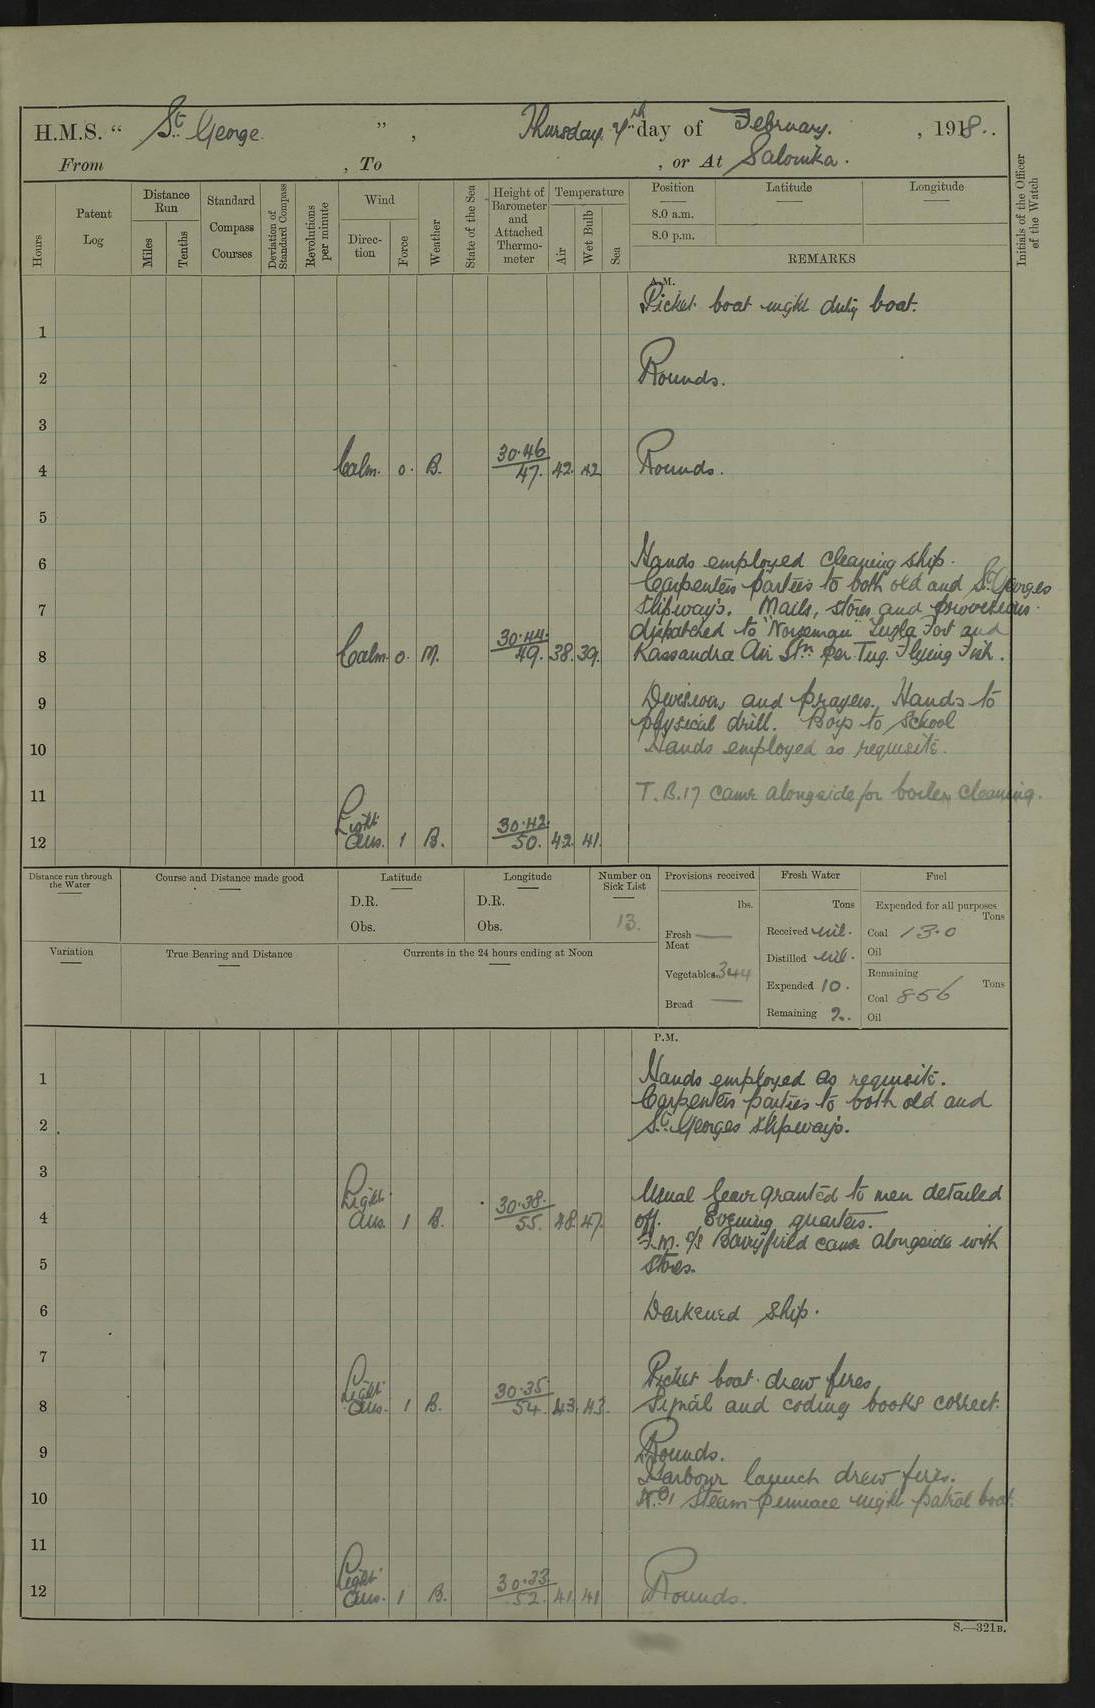 H.M.S. “ St. George ” , Thursday 7th day of February. , 1918..
From , To , or At Salonika.
Hours
Patent Log
Distance Run
Miles
Tenths
Standard Compass Courses
Deviation of Standard Compass
Revolutions per minute
Wind
Direc- tion
Force
Weather
State of the Sea
Height of Barometer and Attached Thermo- meter
Temperature
Air
Wet Bulb
Sea
Position
8.0 a.m.
8.0 p.m.
Latitude
Longitude
REMARKS
Initials of the Officer of the Watch
A.M.
Picket boat night duty boat.
1
2 Rounds.
3
4 Calm. 0. B. 30.46 47. 42. 42 Rounds.
5
6 Hands employed cleaning ship.
Carpenters parties to both old and St Georges
7 slipways. Mails, stores and provisions
dispatched to "Norseman" Tuzla Fort and
8 Calm. 0. M. 30.44. 49. 38. 39. Kassandra Air Stn per Tug. Flying Fish.
9 Divisions and prayers. Hands to
physical drill. Boys to School
10 Hands employed as requisite.
11 T.B.17 came alongside for boiler cleaning.
12 Light Airs. 1 B. 30.42. 50. 42. 41.
Distance run through the Water
Course and Distance made good
Latitude
D.R.
Obs.
Longitude
D.R.
Obs.
Number on Sick List
13.
Provisions received
lbs.
Fresh Meat —
Vegetables 344
Bread —
Fresh Water
Tons
Received nil.
Distilled nil.
Expended 10.
Remaining 2.
Fuel
Expended for all purposes
Tons
Coal 13.0
Oil
Remaining
Tons
Coal 856
Oil
Variation
True Bearing and Distance
Currents in the 24 hours ending at Noon
P.M.
1 Hands employed as requisite.
Carpenters parties to both old and
2 St. Georges slipways.
3
Usual leave granted to men detailed
4 Light Airs. 1 B. 30.38. 55. 48. 47. off. Evening quarters.
F.M. s/s Barryfield came alongside with
5 stores.
6 Darkened ship.
7
Picket boat drew fires
8 Light Airs. 1 B. 30.35 54. 43. 43. Signal and coding books correct.
9 Rounds.
Harbour launch drew fires.
10 No. 1 Steam pinnace night patrol boat.
11
12 Light Airs. 1 B. 30.33 52. 41. 41 Rounds.
S.—321B.